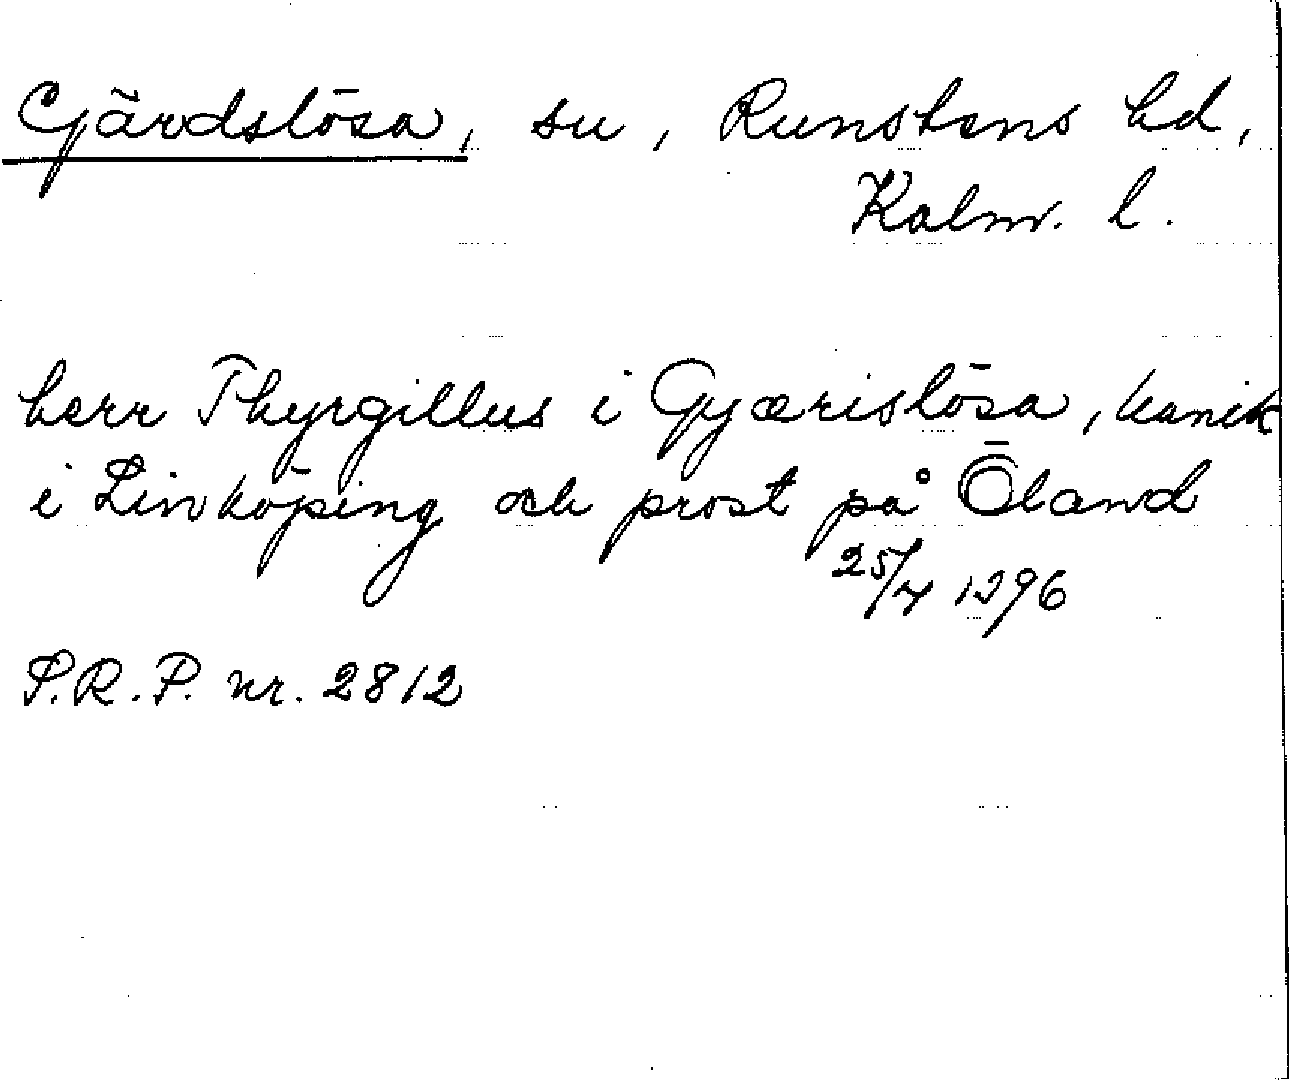 Gärdslösa, sn, Runstens hd,
Kalm. l.
herr Thyrgillus i Gyærislösa, kanik
i Linköping och prost på Öland
25/4 1396
S.R.P. nr. 2812